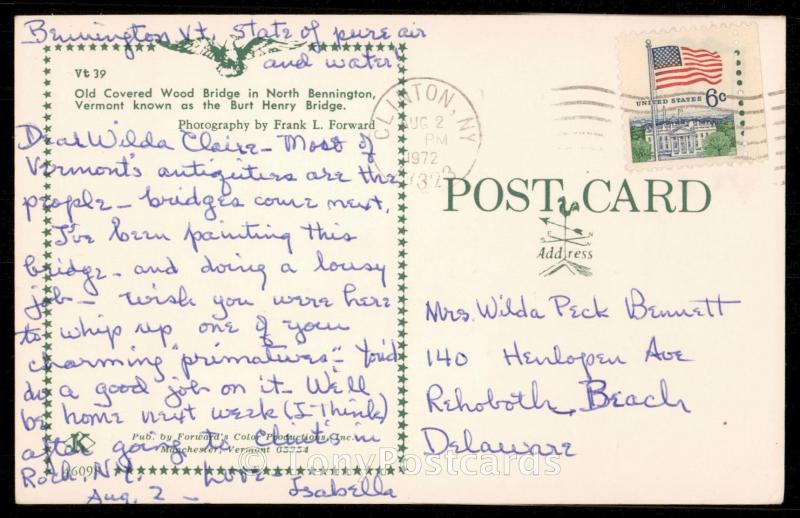 Bennington Vt, State of pure air
and water!
Vt 39
Old Covered Wood Bridge in North Bennington,
Vermont known as the Burt Henry Bridge.
Photography by Frank L. Forward
Dear Wilda Claire - Most of
Vermont's antiquities are the
people - bridges come next.
I've been painting this
bridge - and doing a lousy
job - wish you were here
to whip up one of your
charming "primatives" - You'd
do a good job on it - We'll
be home next week (I think)
after going to in
Rock, N.Y.
Love -
Aug. 2 - Isabella
Pub. by Forward's Color Productions, Inc.
Manchester, Vermont 05254
K
CLINTON, NY
AUG 2
PM
1972
13323
UNITED STATES 6c
POST CARD
N
S
Address
Mrs. Wilda Peck Bennett
140 Henlopen Ave
Rehoboth, Beach
Delaware
© TonyPostcards